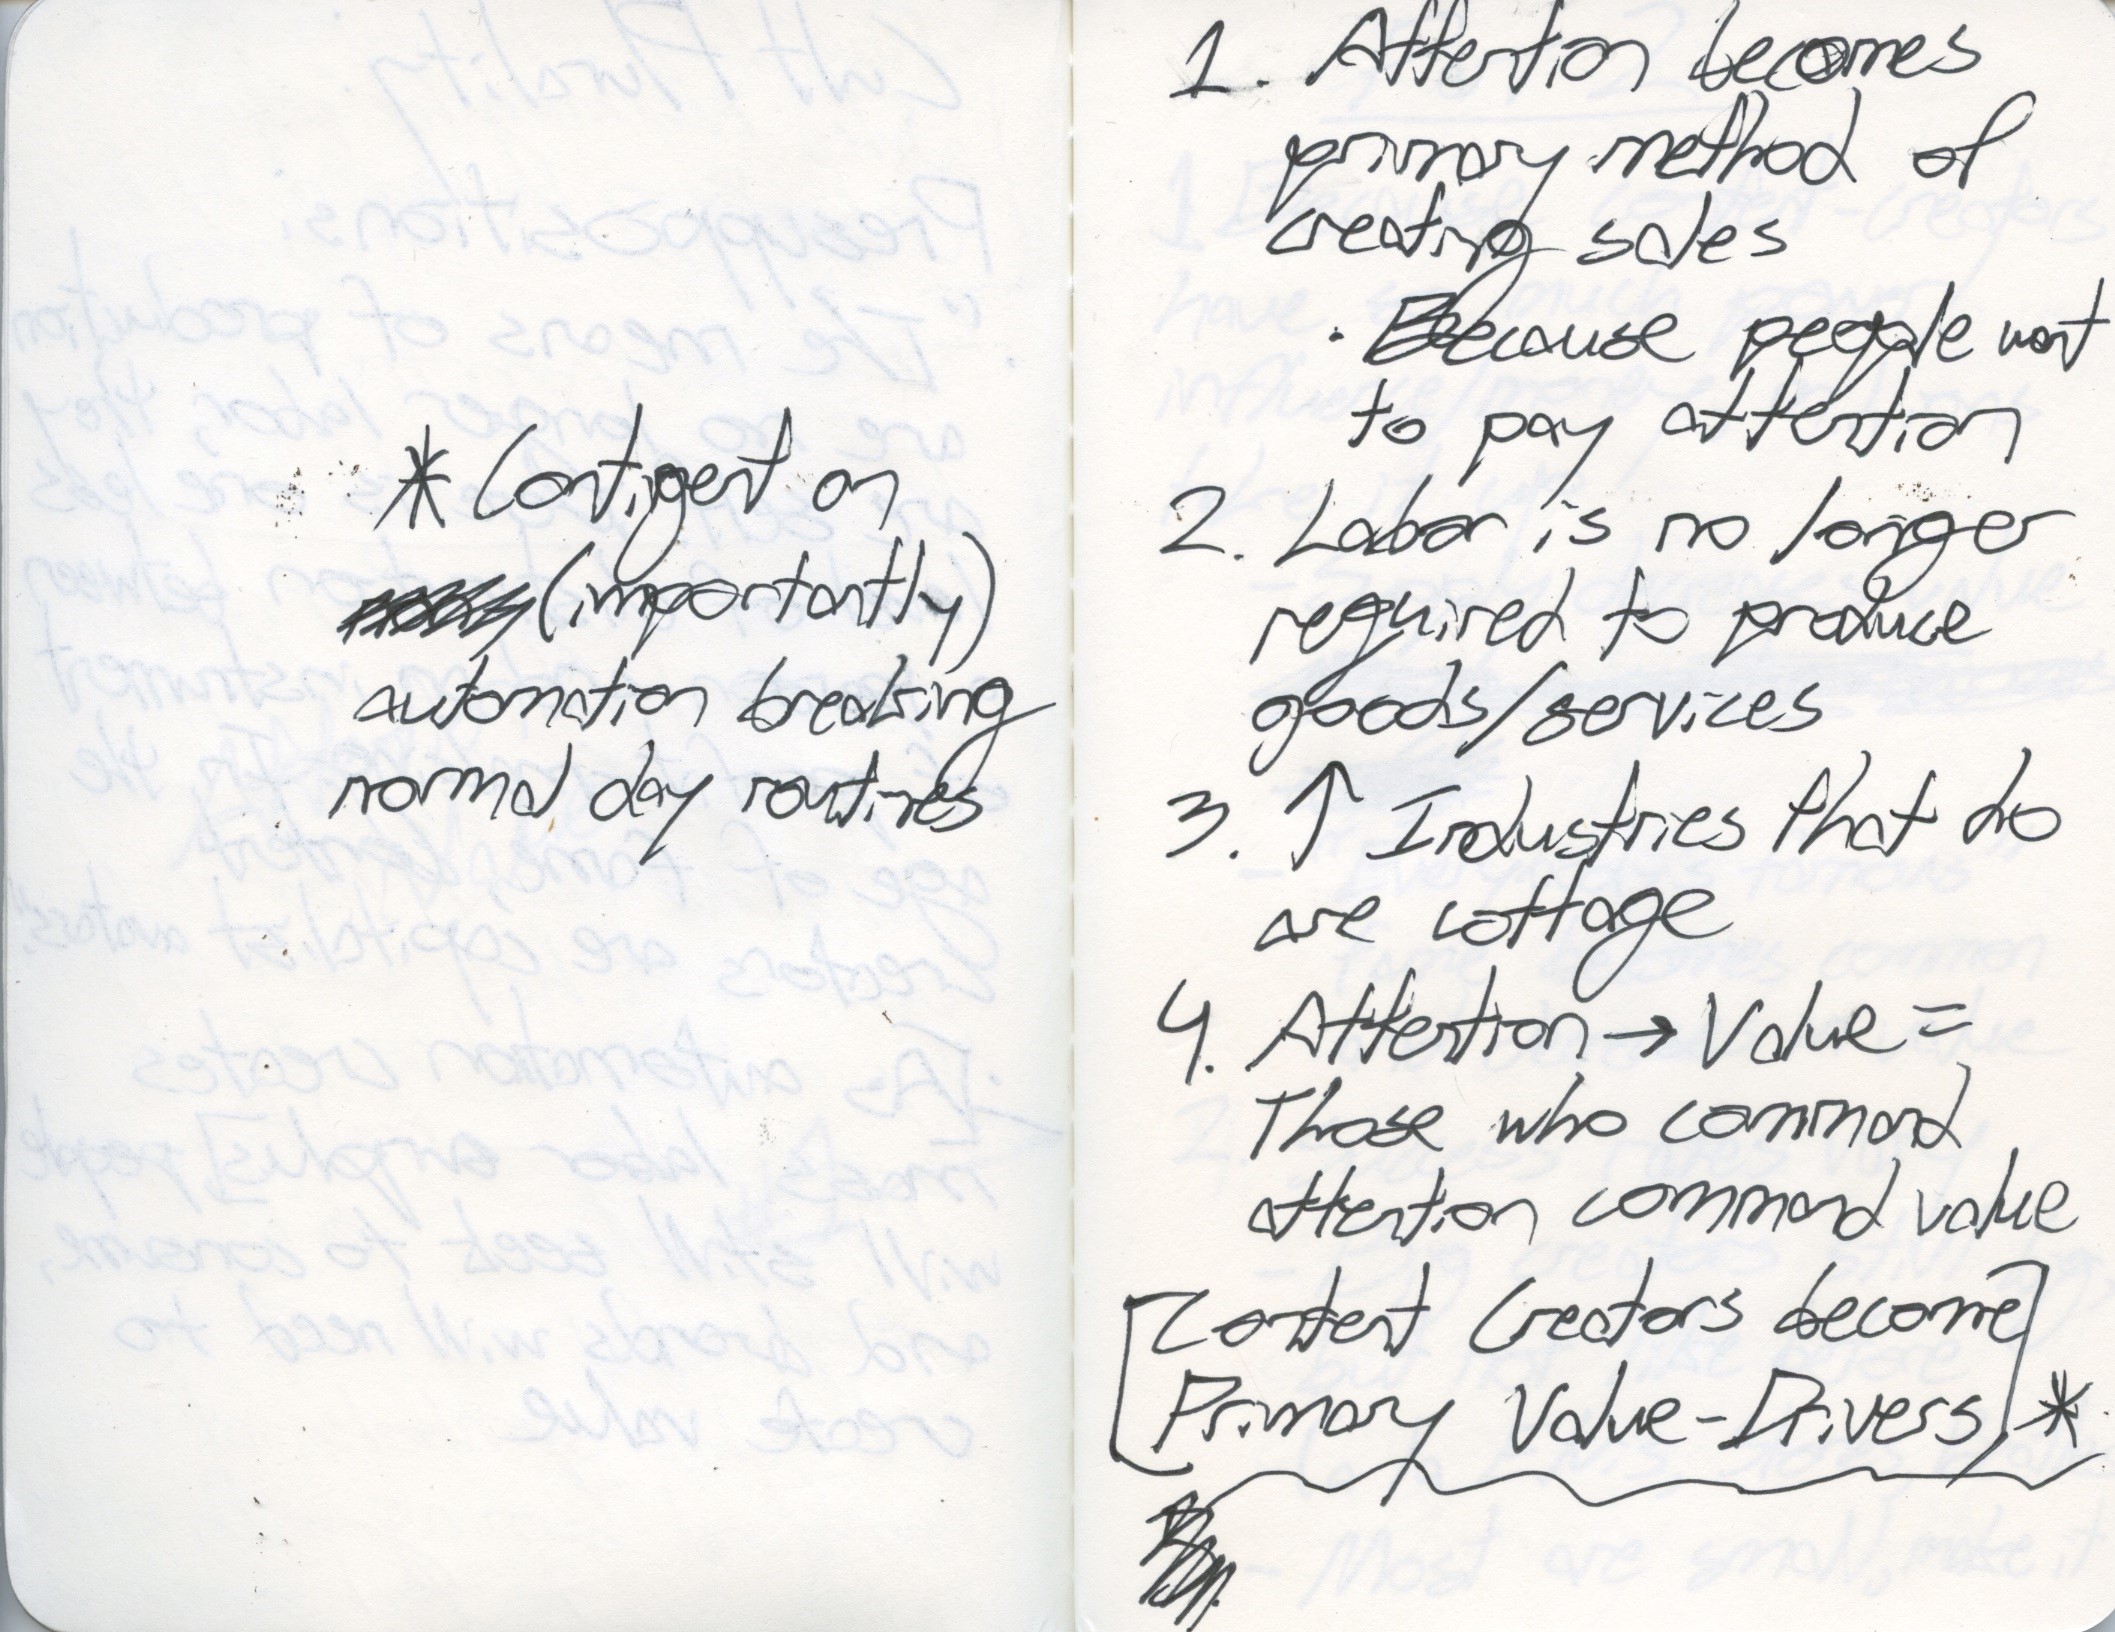 * Contigent on
(importantly)
automation breaking
normal day routines
1. Attention becomes
primary method of
creating sales
· Because people want
to pay attention
2. Labor is no longer
required to produce
goods/services
3. ↑ Industries that do
are cottage
4. Attention → Value =
Those who command
attention command value
[Content Creators become
Primary Value-Drivers] *